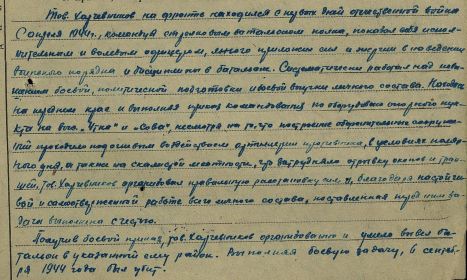 Тов. Харчевников на фронтах находился с первых дней отечественной войны
С апреля 1944 г. командуя стрелковым батальоном полка, показал себя испол-
нительным и волевым офицером, много приложил сил и энергии в наведении
порядка и дисциплины в батальоне. Систематически работал над повы-
шением боевой, политической подготовки и боевой выучки личного состава. Находясь
на крайнем крае и выполняя приказ командования по оборудованию опорного пунк-
та на выс. "Утка" и "Сова", несмотря на то, что построение оборонительных сооруже-
ний проводили под огневым воздействием артиллерии противника, в условиях поляр-
ного дня, а также на скалистой местности, что затрудняло отрывку окопов и тран-
шей, тов. Харчевников организовал правильную расстановку сил и, благодаря настойчи-
вой и самоотверженной работе всего личного состава, поставленная перед ним за-
дача выполнена с честью.
Получив боевой приказ, тов. Харчевников организованно и умело вывел ба-
тальон в указанный ему район. Выполняя боевую задачу, 6 сентяб-
ря 1944 года был убит.